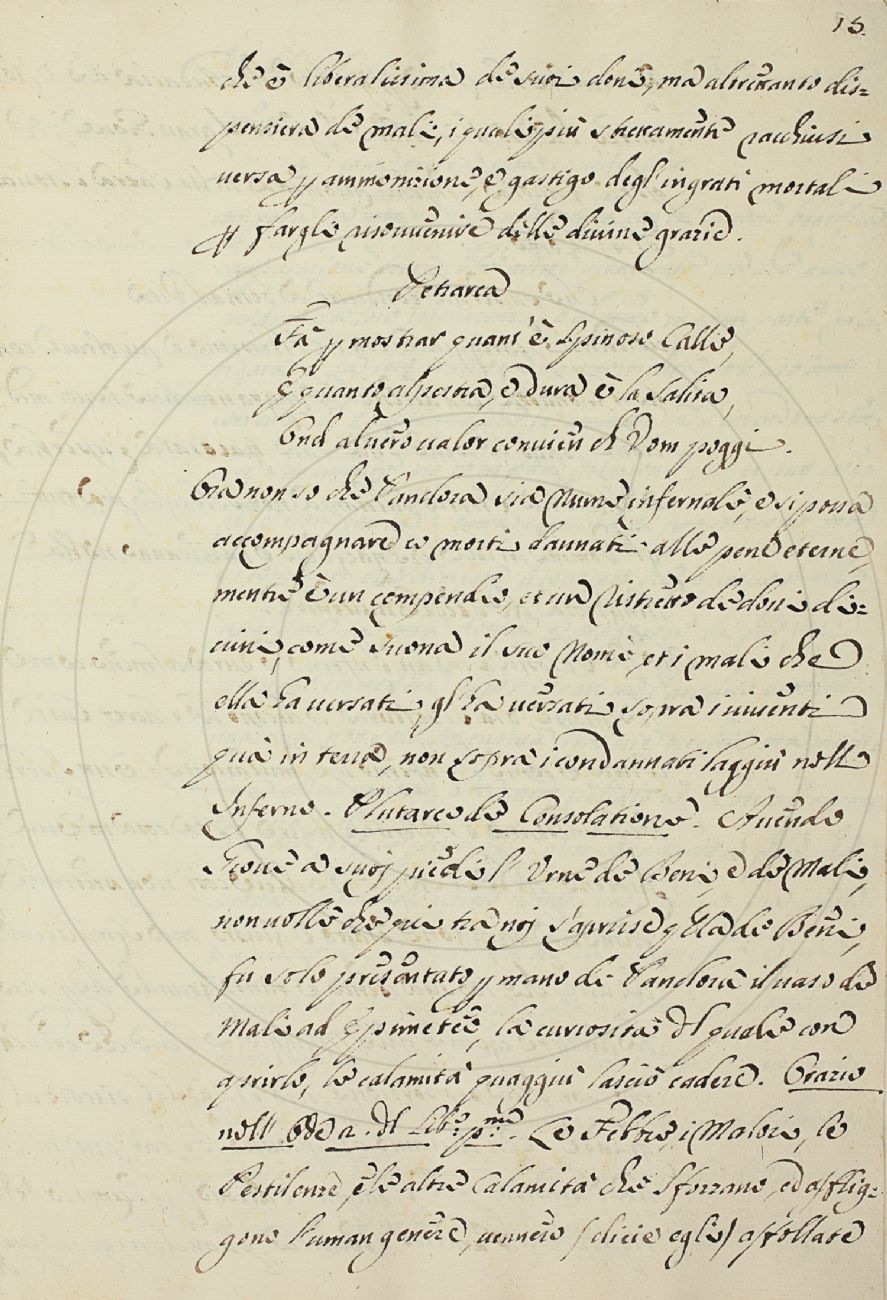 15.
che è liberalissima de suoi doni, ma altretanto dis=
pensiera de mali, i quali più strettamente racchiusi
versa p ammonizione, e gastigo degl' ingrati mortali
p fargli risouuenire delle diuine grazie.
Petrarca
Fà p mostrar quant' è spinoso Calle,
E quanto alpestra, e dura è la Salita,
Ond' al uero ualor conuien ch' Vom poggi.
Ora non so che Pandora sia Nume infernale, e si possa
accompagnare co morti dannati alle pene eterne,
mentre è un compendio, et un Ristretto de doni di=
uini, come suona il suo Nome, et i mali che
ella ha uersati, gl' ha uersati sopra i uiuenti
quà in terra, non sopra i condannati laggiù nell'
Inferno. Plutarco de Consolatione. Auendo
Gioue a suoj piedi l' Vrne de Beni, e de Mali,
non uolle che qui tra noj s'aprisse qlla de Beni,
fu solo presentato p mano di Pandora il uaso de
Mali ad Epimeteo, la curiosità dl quale con
aprirlo, le calamità quaggiù lasciò cadere. Orazio
nell' Ode 2. dl Lib.o p.mo. Le Febbri, i Malori, le
Pestilenze, e le altre Calamità che sforzano, ed afflig=
gono l' uman genere, uennero (dicie egli) affollate